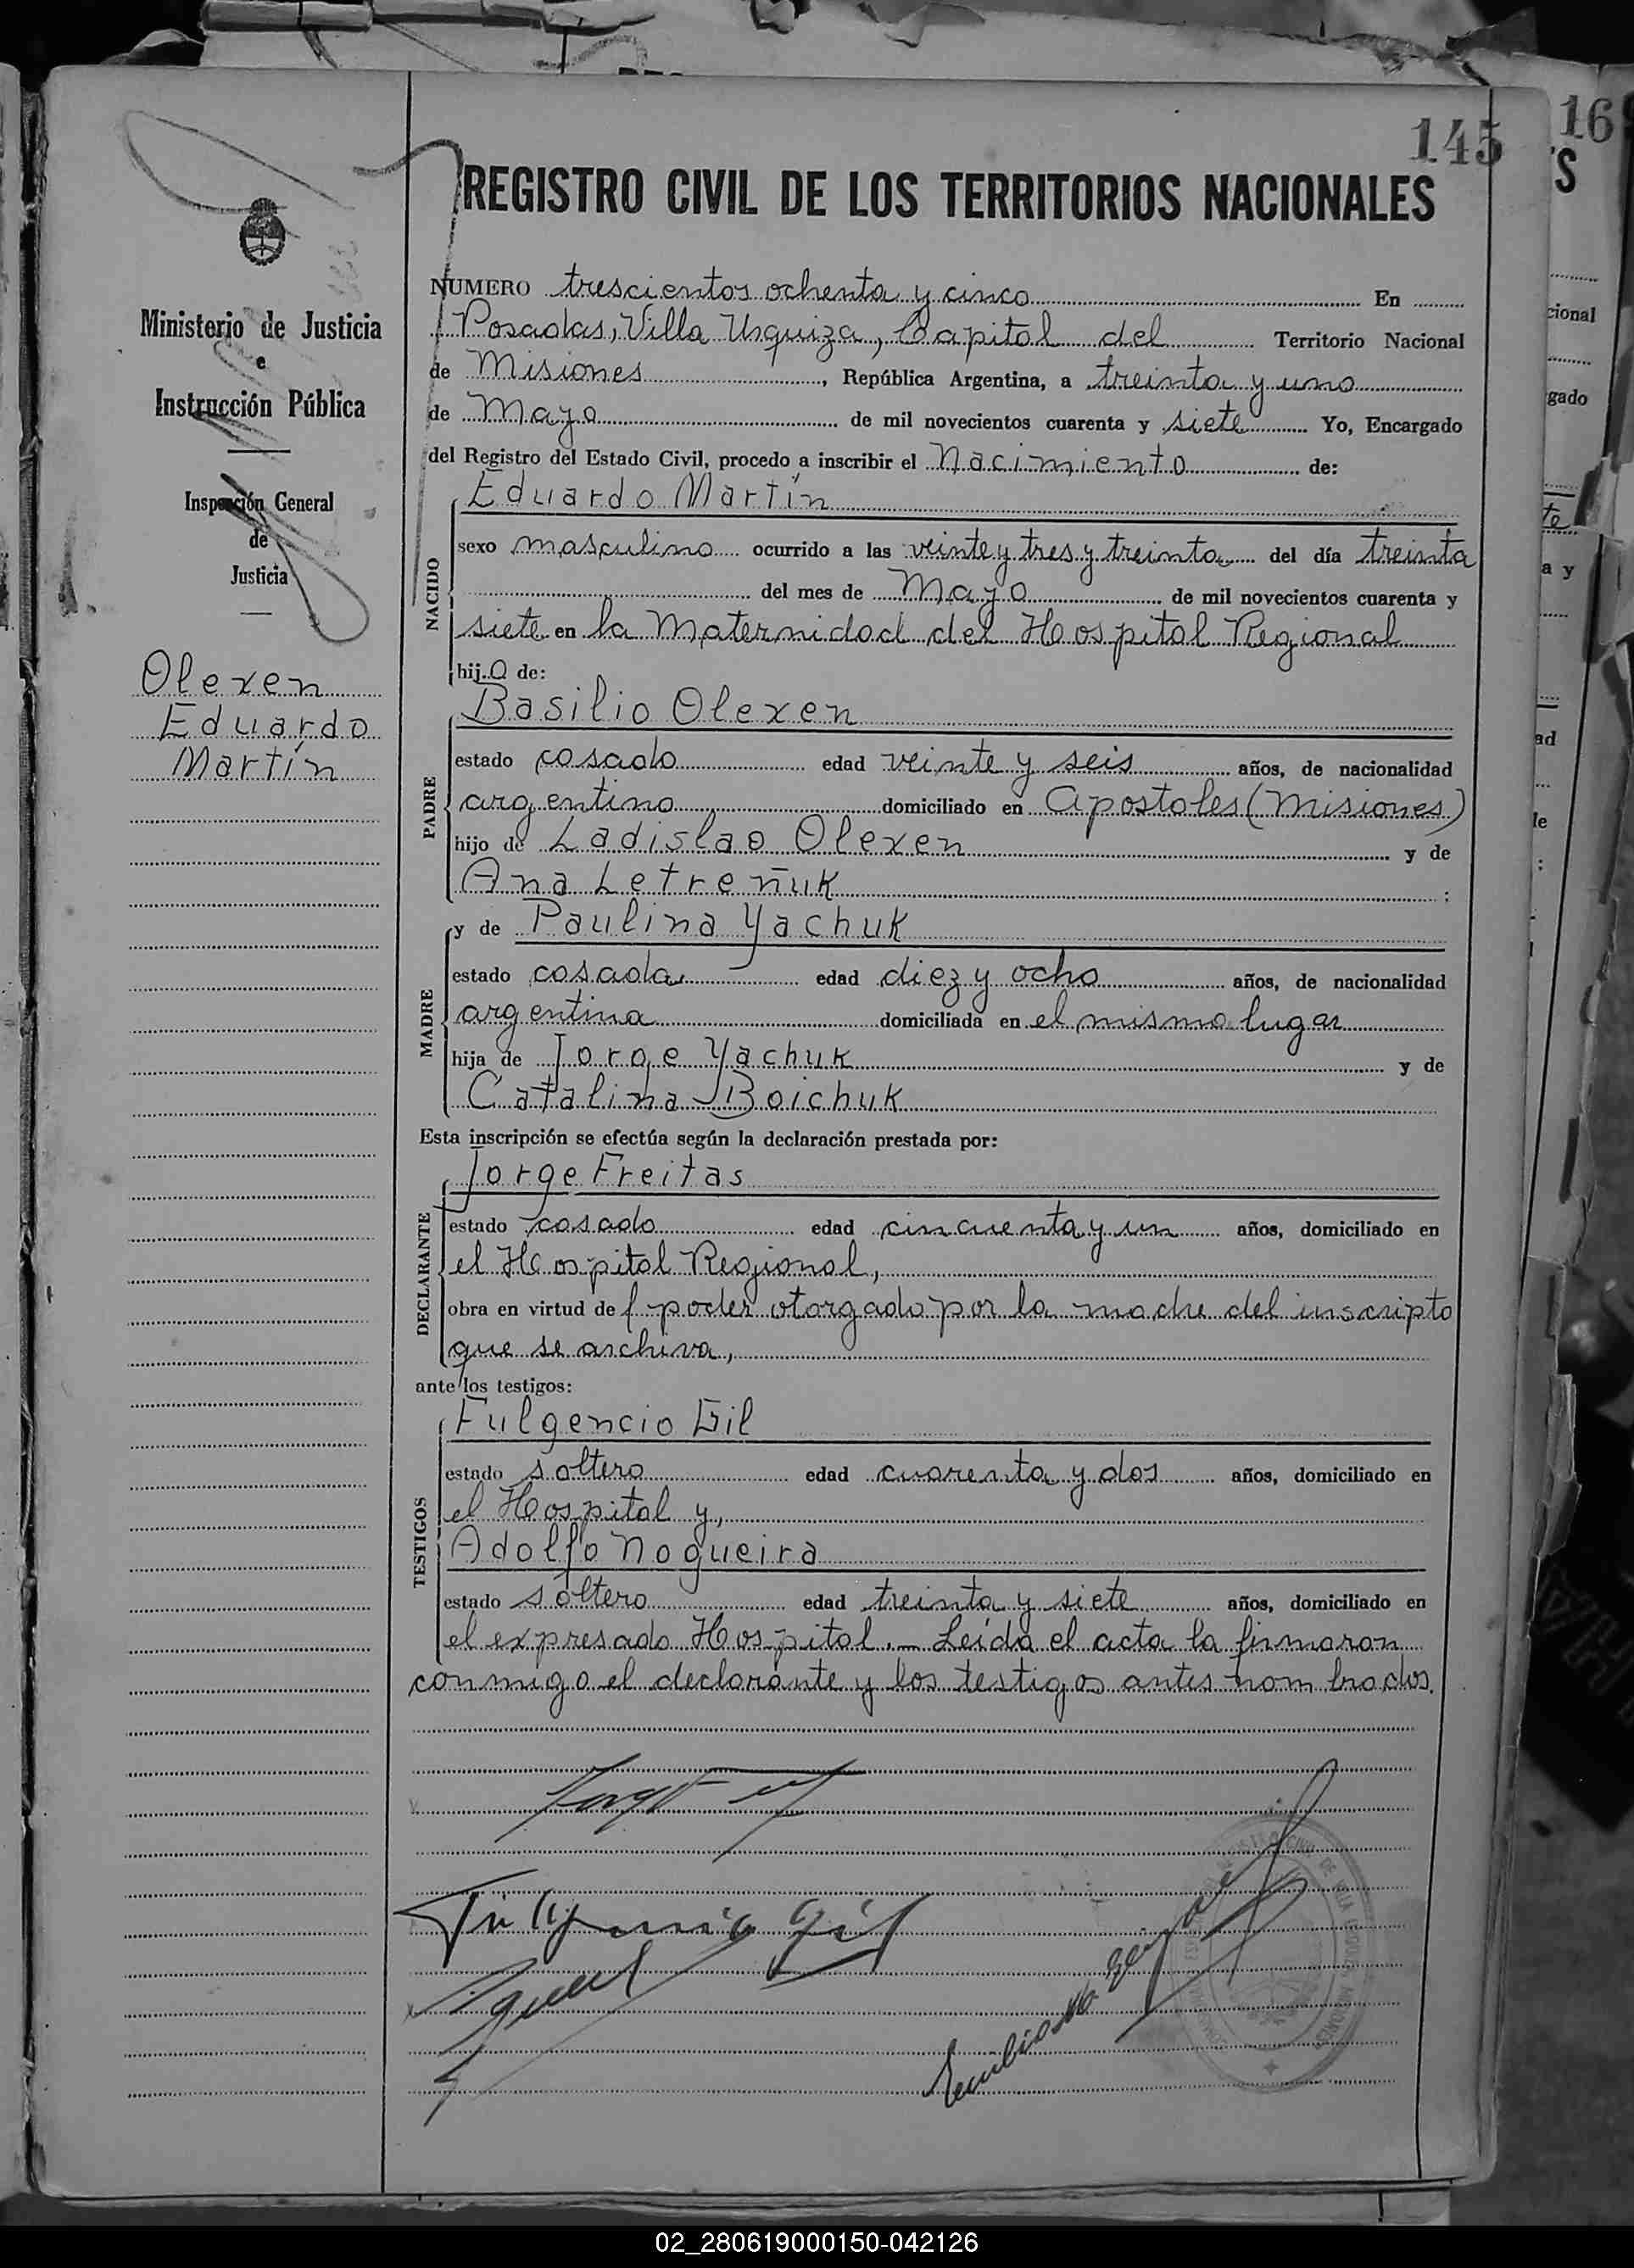 145
16
REGISTRO CIVIL DE LOS TERRITORIOS NACIONALES
Ministerio de Justicia
e
Instrucción Pública
Inspección General
de
Justicia
Olexen
Eduardo
Martín
NUMERO trescientos ochenta y cinco En
Posadas, Villa Urquiza, Capital del Territorio Nacional
de Misiones, República Argentina, a treinta y uno
de Mayo de mil novecientos cuarenta y siete Yo, Encargado
del Registro del Estado Civil, procedo a inscribir el Nacimiento de:
NACIDO
Eduardo Martín
sexo masculino ocurrido a las veinte y tres y treinta del día treinta
del mes de Mayo de mil novecientos cuarenta y
siete en la Maternidad del Hospital Regional
hijo de:
PADRE
Basilio Olexen
estado casado edad veinte y seis años, de nacionalidad
argentino domiciliado en Apostoles (Misiones)
hijo de Ladislao Olexen y de
Ana Letreñuk ;
MADRE
y de Paulina Yachuk
estado casada edad diez y ocho años, de nacionalidad
argentina domiciliada en el mismo lugar
hija de Jorge Yachuk y de
Catalina Boichuk
Esta inscripción se efectúa según la declaración prestada por:
DECLARANTE
Jorge Freitas
estado casado edad cincuenta y un años, domiciliado en
el Hospital Regional,
obra en virtud de poder otorgado por la madre del inscripto
que se archiva,
ante los testigos:
TESTIGOS
Fulgencio Gil
estado soltero edad cuarenta y dos años, domiciliado en
el Hospital y,
Adolfo Nogueira
estado soltero edad treinta y siete años, domiciliado en
el expresado Hospital.— Leída el acta la firmaron
conmigo el declarante y los testigos antes nombrados.
Fulgencio Gil
02_280619000150-042126